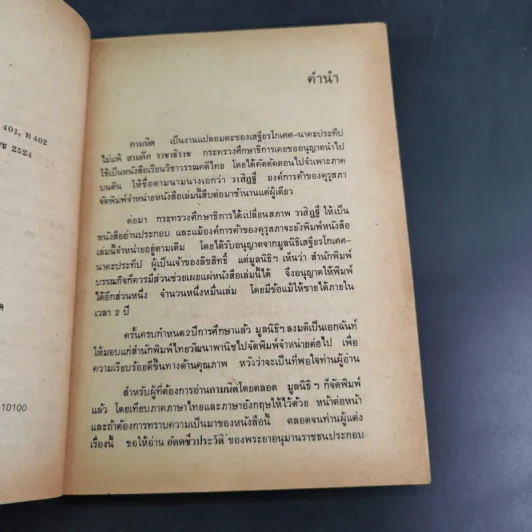 401, ท 402
ช 2524
10100
คำนำ
กามนิต เป็นงานแปลอมตะของเสฐียรโกเศศ-นาคะประทีป
ไม่แพ้ สามก๊ก ราชาธิราช กระทรวงศึกษาธิการเคยขออนุญาตนำไป
ใช้เป็นหนังสือเรียนวิชาวรรณคดีไทย โดยได้คัดตัดตอนไปจำเพาะภาค
บนดิน ให้ชื่อตามนามนางเอกว่า วาสิฏฐี องค์การค้าของคุรุสภา
จัดพิมพ์จำหน่ายหนังสือเล่มนี้สืบต่อมาช้านานแต่ผู้เดียว
ต่อมา กระทรวงศึกษาธิการได้เปลี่ยนสภาพ วาสิฏฐี ให้เป็น
หนังสืออ่านประกอบ และแม้องค์การค้าของคุรุสภาจะยังพิมพ์หนังสือ
เล่มนี้จำหน่ายอยู่ตามเดิม โดยได้รับอนุญาตจากมูลนิธิเสฐียรโกเศศ-
นาคะประทีป ผู้เป็นเจ้าของลิขสิทธิ์ แต่มูลนิธิฯ เห็นว่า สำนักพิมพ์
บรรณกิจก็ควรมีส่วนช่วยเผยแผ่หนังสือเล่มนี้ได้ จึงอนุญาตให้พิมพ์
ได้อีกส่วนหนึ่ง จำนวนหนึ่งหมื่นเล่ม โดยมีข้อแม้ให้ขายได้ภายใน
เวลา 2 ปี
ครั้นครบกำหนด2ปีการศึกษาแล้ว มูลนิธิฯ ลงมติเป็นเอกฉันท์
ให้มอบแก่สำนักพิมพ์ไทยวัฒนาพานิชไปจัดพิมพ์จำหน่ายต่อไป เพื่อ
ความเรียบร้อยดีขึ้นทางด้านคุณภาพ หวังว่าจะเป็นที่พอใจท่านผู้อ่าน
สำหรับผู้ที่ต้องการอ่านกามนิตโดยตลอด มูลนิธิฯ ก็จัดพิมพ์
แล้ว โดยเทียบภาคภาษาไทยและภาษาอังกฤษให้ไว้ด้วย หน้าต่อหน้า
และถ้าต้องการทราบความเป็นมาของหนังสือนี้ ตลอดจนท่านผู้แต่ง
เรื่องนี้ ขอให้อ่าน อัตตชีวประวัติ ของพระยาอนุมานราชธนประกอบ